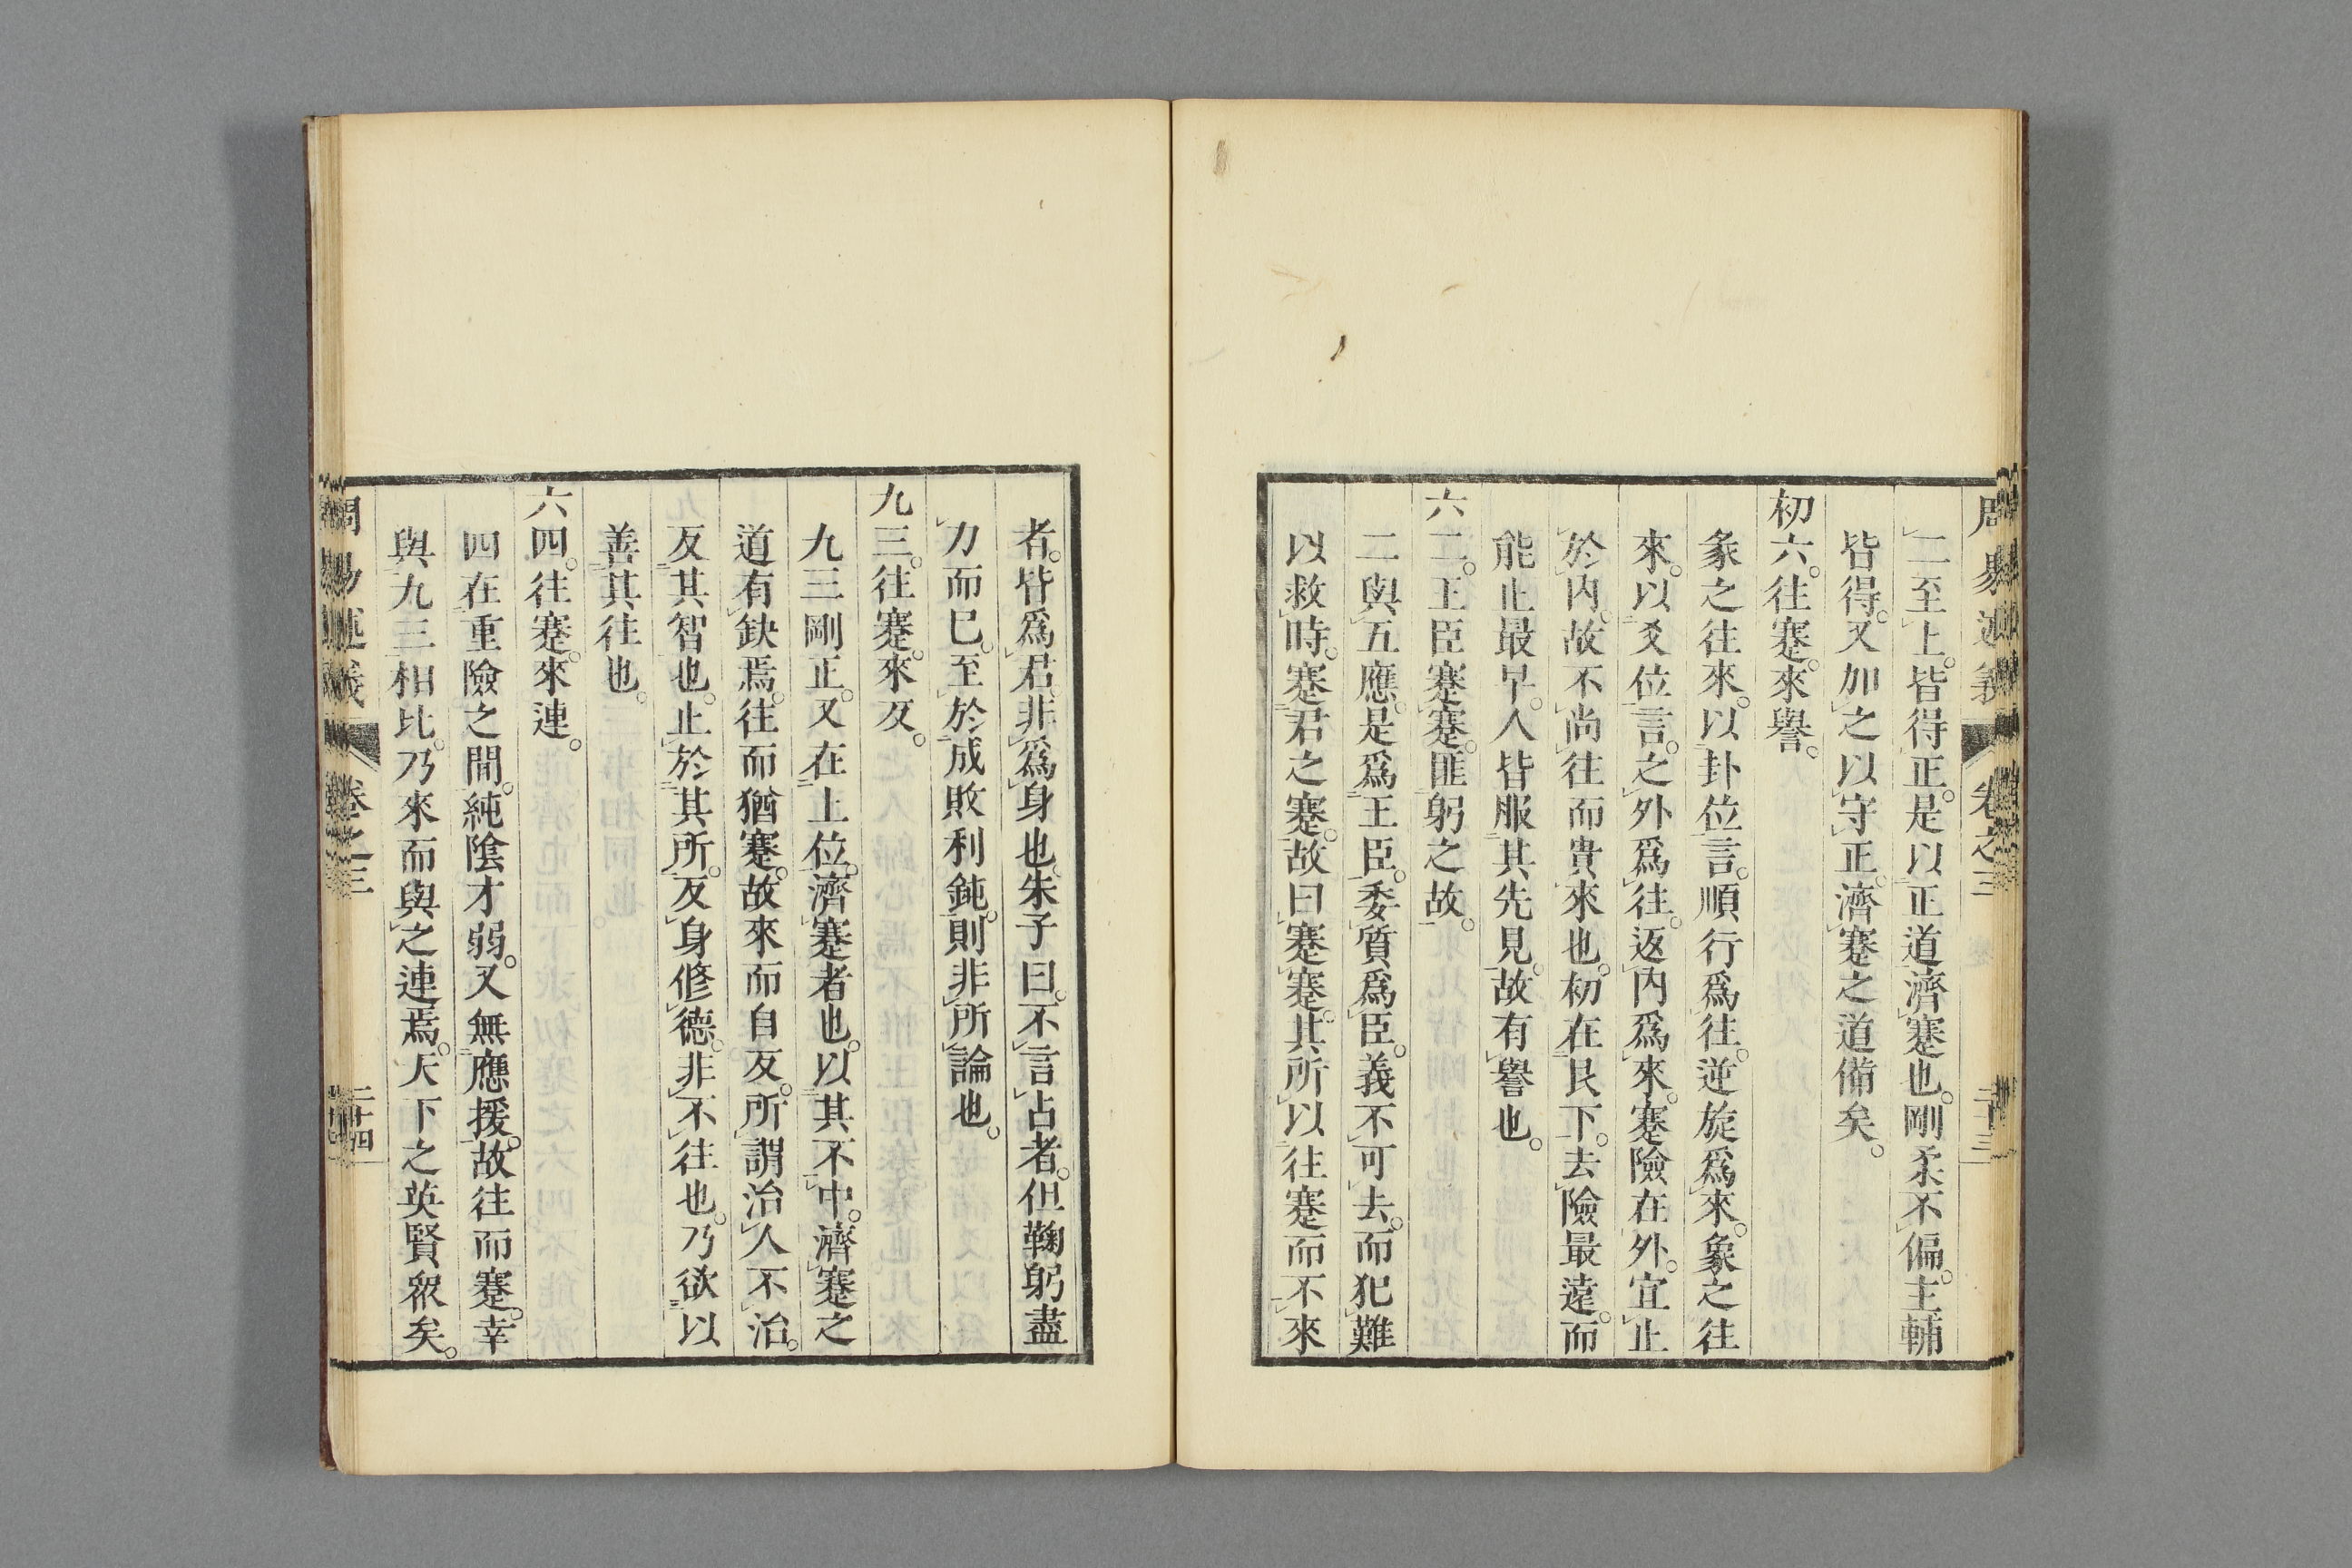 周易述義　卷之三　二十三
二至上。皆得正。是以正道濟蹇也。剛柔不偏。主輔
皆得。又加之以守正。濟蹇之道備矣。
初六。往蹇。來譽。
彖之往來。以卦位言。順行爲往。逆旋爲來。象之往
來。以爻位言。之外爲往。返內爲來。蹇險在外。宜止
於內。故不尚往而貴來也。初在艮下。去險最遠。而
能止最早。人皆服其先見。故有譽也。
六二。王臣蹇蹇。匪躬之故。
二與五應。是爲王臣。委質爲臣。義不可去。而犯難
以救時。蹇君之蹇。故曰蹇蹇。其所以往蹇而不來
者。皆爲君、非爲身也、朱子曰。不言占者。但鞠躬盡
力而巳。至於成敗利鈍。則非所論也。
九三。往蹇。來反。
九三剛正。又在上位。濟蹇者也。以其不中。濟蹇之
道有缺焉。往而猶蹇。故來而自反。所謂治人不治。
反其智也。止於其所。反身修德。非不往也。乃欲以
善其往也。
六四。往蹇。來連。
四在重險之間。純陰才弱。又無應援。故往而蹇。幸
與九三相比。乃來而與之連焉。天下之英賢衆矣。
周易述義　卷之三　二十四